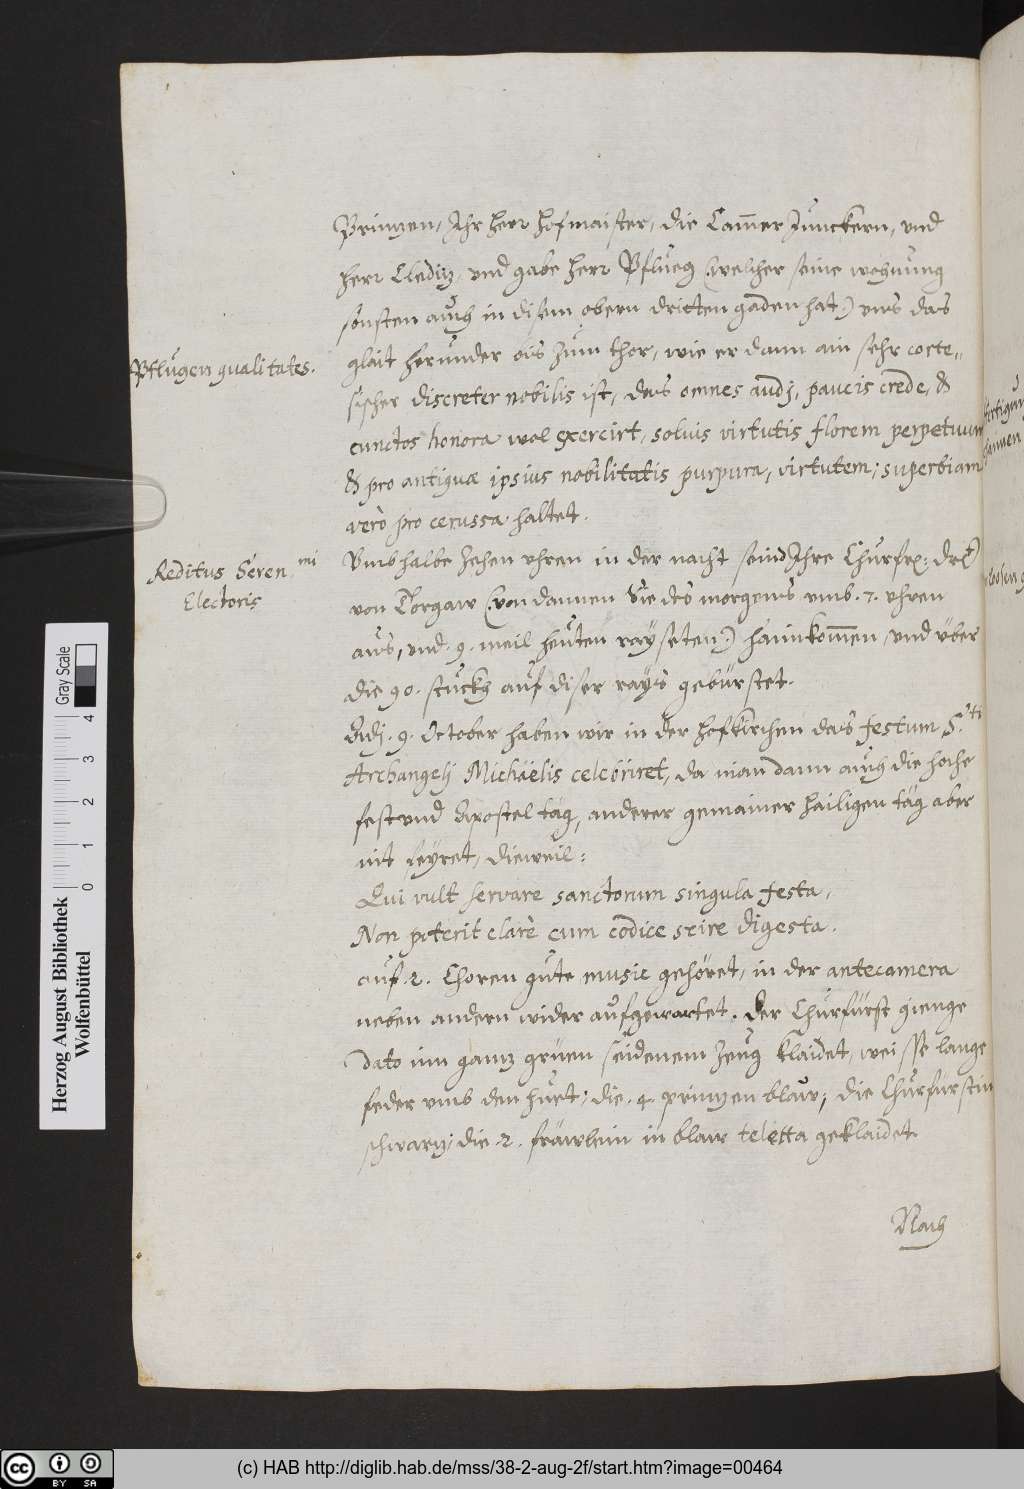 Printzen, Ihr Herr Hofmaister, die Cam̄er Junckern, vnd
Herr Cleditz, vnd gabe Herr Pflueg (welcher seine wohnung
sonsten auch in disem obern dritten gaden hat) vns das
Pflugen qualitates.
glait herunder bis zum thor, wie er dann ain sehr corte„
sischer discreter nobilis ist, das omnes audj, paucis crede, &
cunctos honora wol exercirt, soluis virtutis florem perpetuum
& pro antiquæ ipsius nobilitatis purpura, virtutem; superbiam
verò pro cerussa haltet.
Reditus Seren.mi
Electoris
Vmb halbe zehen vhren in der nacht seind Ihre Churfr: Drt
von Torgaw (von dannen Sie des morgens vmb .7. vhren
aus, vnd .9. meil heuten rayseten) haimkom̄en, vnd über
die 90. stuckh auf diser rays gebürstet.
Adj. 9. October haben wir in der Hofkirchen das festum S.ti
Archangelj Michäelis celebriret, da man dann auch die hohe
fest vnd Apostel täg, anderer gemainer hailigen täg aber
nit feyret, dieweil:
Qui vult servare sanctorum singula festa,
Non poterit clarè cum codice scire digesta.
auf .2. Choren gute music gehöret, in der antecamera
neben andern wider aufgewartet. Der Churfürst gienge
dato inn gantz grüen seidenem zeug klaidet, weisse lange
feder vmb den huet; die .4. printzen blaw; die Churfürstin
schwartz; die .2. fräwlein in blaw teletta geklaidet.
Nach
Herzog August Bibliothek
Wolfenbüttel
0 1 2 3 4
Gray Scale
cc BY SA
(c) HAB http://diglib.hab.de/mss/38-2-aug-2f/start.htm?image=00464